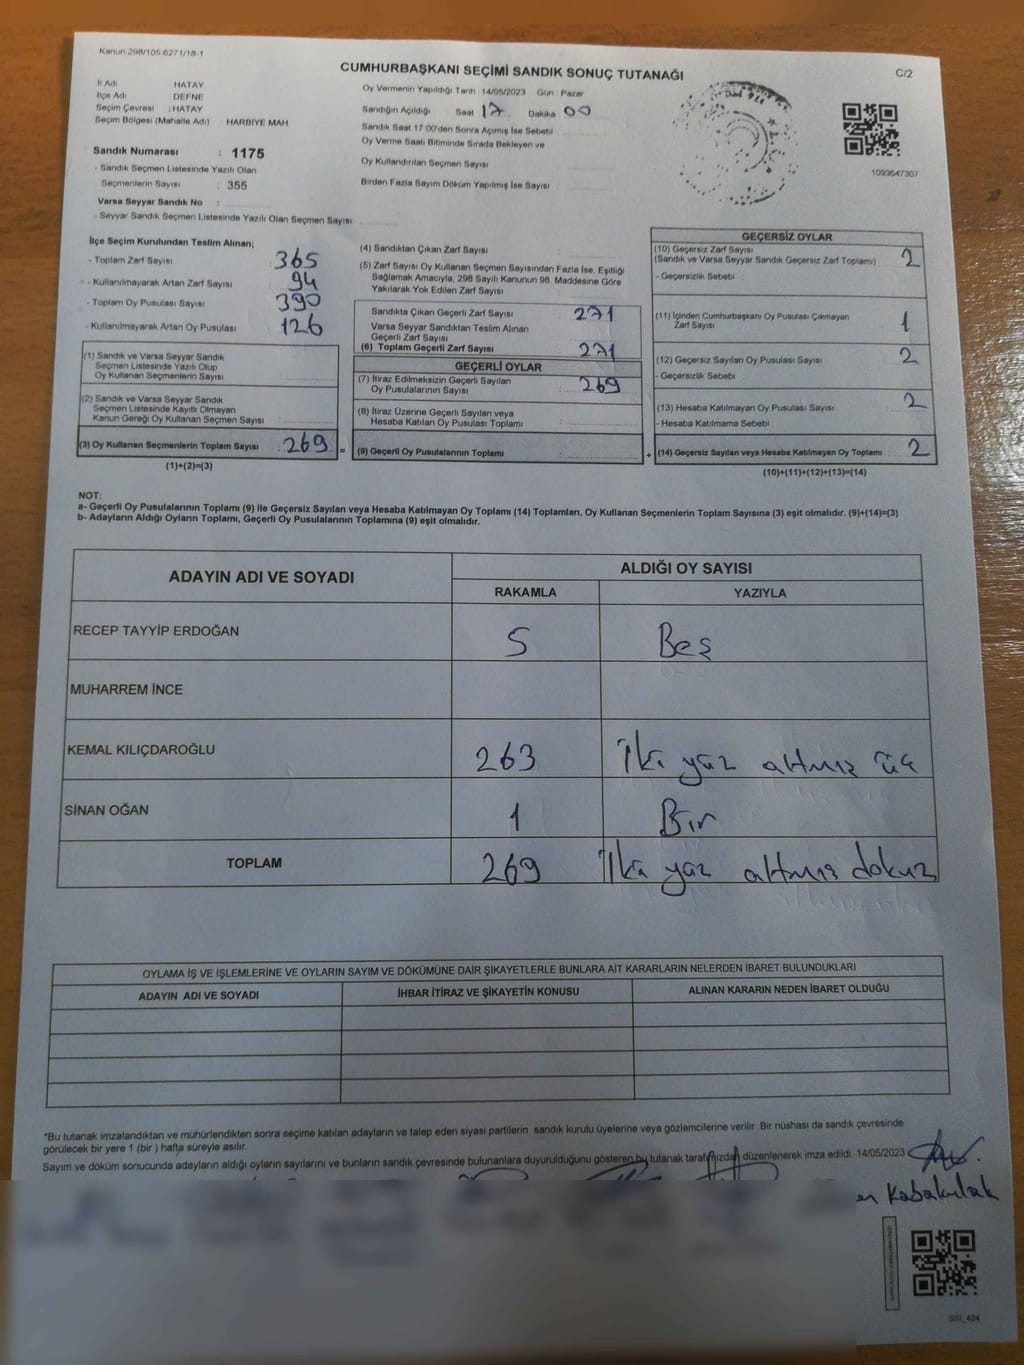 Kanun:298/105,6271/18-1
CUMHURBAŞKANI SEÇİMİ SANDIK SONUÇ TUTANAĞI
C/2
İl Adı : HATAY
İlçe Adı : DEFNE
Seçim Çevresi : HATAY
Seçim Bölgesi (Mahalle Adı) : HARBİYE MAH
Sandık Numarası : 1175
- Sandık Seçmen Listesinde Yazılı Olan
Seçmenlerin Sayısı : 355
Varsa Seyyar Sandık No :
- Seyyar Sandık Seçmen Listesinde Yazılı Olan Seçmen Sayısı:
Oy Vermenin Yapıldığı Tarih :14/05/2023 Gün : Pazar
Sandığın Açıldığı Saat 17 Dakika 00
Sandık Saat 17:00'den Sonra Açımış İse Sebebi
Oy Verme Saati Bitiminde Sırada Bekleyen ve
Oy Kullandırılan Seçmen Sayısı
Birden Fazla Sayım Döküm Yapılmış İse Sayısı
1093647307
İlçe Seçim Kurulundan Teslim Alınan;
- Toplam Zarf Sayısı : 365
- Kullanılmayarak Artan Zarf Sayısı : 94
- Toplam Oy Pusulası Sayısı : 390
- Kullanılmayarak Artan Oy Pusulası : 126
(1) Sandık ve Varsa Seyyar Sandık
Seçmen Listesinde Yazılı Olup
Oy Kullanan Seçmenlerin Sayısı :
(2) Sandık ve Varsa Seyyar Sandık
Seçmen Listesinde Kayıtlı Olmayan
Kanun Gereği Oy Kullanan Seçmen Sayısı :
(3) Oy Kullanan Seçmenlerin Toplam Sayısı : 269
(1)+(2)=(3)
(4) Sandıktan Çıkan Zarf Sayısı
(5) Zarf Sayısı Oy Kullanan Seçmen Sayısından Fazla İse, Eşitliği
Sağlamak Amacıyla, 298 Sayılı Kanunun 98. Maddesine Göre
Yakılarak Yok Edilen Zarf Sayısı
Sandıkta Çıkan Geçerli Zarf Sayısı : 271
Varsa Seyyar Sandıktan Teslim Alınan
Geçerli Zarf Sayısı
(6) Toplam Geçerli Zarf Sayısı : 271
GEÇERLİ OYLAR
(7) İtiraz Edilmeksizin Geçerli Sayılan : 269
Oy Pusulalarının Sayısı
(8) İtiraz Üzerine Geçerli Sayılan veya
Hesaba Katılan Oy Pusulası Toplamı
= (9) Geçerli Oy Pusulalarının Toplamı
GEÇERSİZ OYLAR
(10) Geçersiz Zarf Sayısı : 2
(Sandık ve Varsa Seyyar Sandık Geçersiz Zarf Toplamı)
- Geçersizlik Sebebi :
(11) İçinden Cumhurbaşkanı Oy Pusulası Çıkmayan : 1
Zarf Sayısı
(12) Geçersiz Sayılan Oy Pusulası Sayısı : 2
- Geçersizlik Sebebi
(13) Hesaba Katılmayan Oy Pusulası Sayısı : 2
- Hesaba Katılmama Sebebi
+ (14) Geçersiz Sayılan veya Hesaba Katılmayan Oy Toplamı : 2
(10)+(11)+(12)+(13)=(14)
NOT:
a- Geçerli Oy Pusulalarının Toplamı (9) ile Geçersiz Sayılan veya Hesaba Katılmayan Oy Toplamı (14) Toplamları, Oy Kullanan Seçmenlerin Toplam Sayısına (3) eşit olmalıdır. (9)+(14)=(3)
b- Adayların Aldığı Oyların Toplamı, Geçerli Oy Pusulalarının Toplamına (9) eşit olmalıdır.
ADAYIN ADI VE SOYADI
ALDIĞI OY SAYISI
RAKAMLA YAZIYLA
RECEP TAYYİP ERDOĞAN 5 Beş
MUHARREM İNCE
KEMAL KILIÇDAROĞLU 263 İki yüz altmış üç
SİNAN OĞAN 1 Bir
TOPLAM 269 İki yüz altmış dokuz
OYLAMA İŞ VE İŞLEMLERİNE VE OYLARIN SAYIM VE DÖKÜMÜNE DAİR ŞİKAYETLERLE BUNLARA AİT KARARLARIN NELERDEN İBARET BULUNDUKLARI
ADAYIN ADI VE SOYADI İHBAR İTİRAZ VE ŞİKAYETİN KONUSU ALINAN KARARIN NEDEN İBARET OLDUĞU
*Bu tutanak imzalandıktan ve mühürlendikten sonra seçime katılan adayların ve talep eden siyasi partilerin sandık kurulu üyelerine veya gözlemcilerine verilir .Bir nüshası da sandık çevresinde
görülecek bir yere 1 (bir ) hafta süreyle asılır.
Sayım ve döküm sonucunda adayların aldığı oyların sayılarını ve bunların sandık çevresinde bulunanlara duyurulduğunu gösteren bu tutanak tarafımızdan düzenlenerek imza edildi. 14/05/2023
en Kabakulak
SSI_404